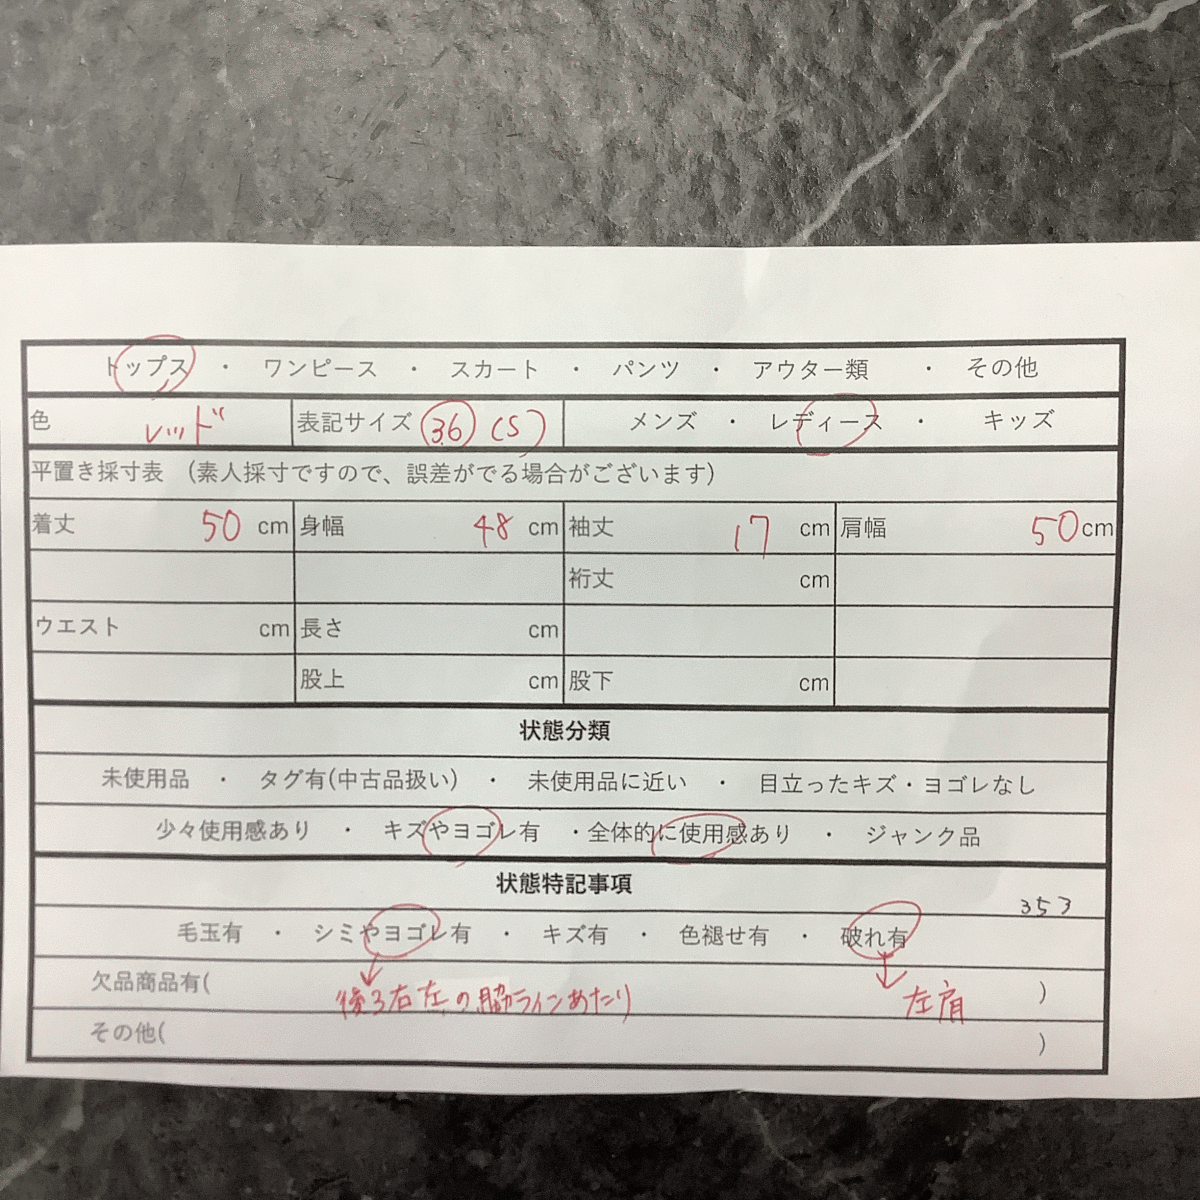 トップス ・ ワンピース ・ スカート ・ パンツ ・ アウター類 ・ その他
色 レッド 表記サイズ 36 (S) メンズ ・ レディース ・ キッズ
平置き採寸表 (素人採寸ですので、誤差がでる場合がございます)
着丈 50 cm 身幅 48 cm 袖丈 17 cm 肩幅 50 cm
裄丈 cm
ウエスト cm 長さ cm
股上 cm 股下 cm
状態分類
未使用品 ・ タグ有(中古品扱い) ・ 未使用品に近い ・ 目立ったキズ・ヨゴレなし
少々使用感あり ・ キズやヨゴレ有 ・全体的に使用感あり ・ ジャンク品
状態特記事項
353
毛玉有 ・ シミやヨゴレ有 ・ キズ有 ・ 色褪せ有 ・ 破れ有
欠品商品有( )
後ろ右左の脇ラインあたり 左肩
その他( )